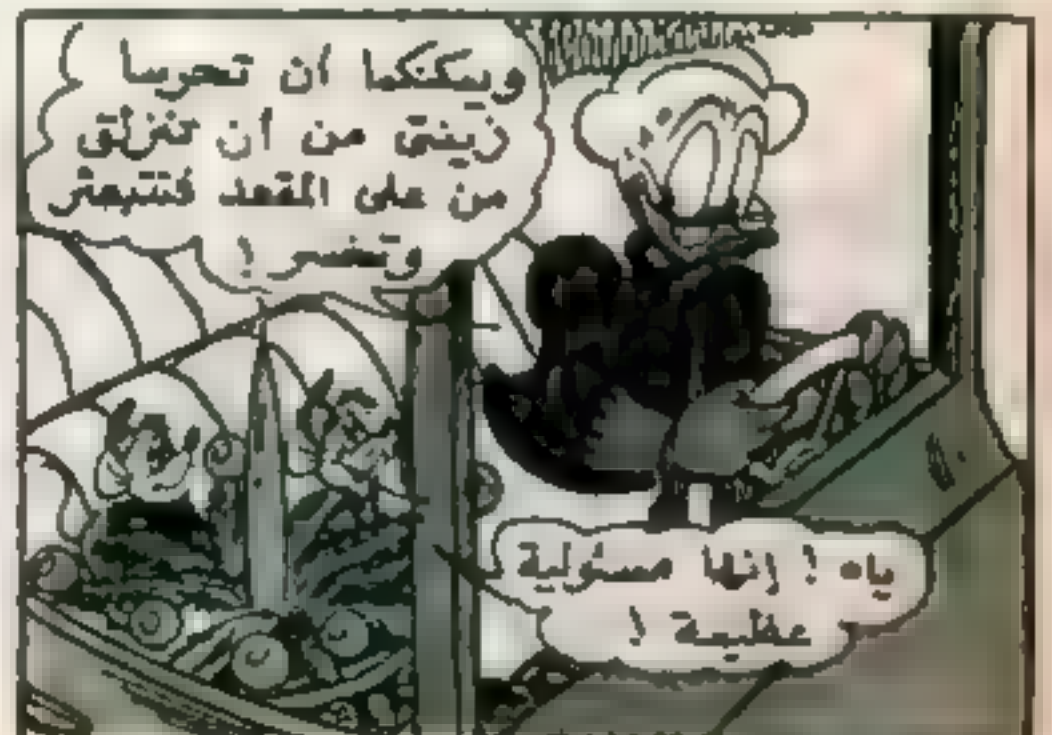 ويمكنكما ان تحرسا
زينتى من ان تنزلق
من على المقعد فتتبعثر
وتخسر !
ياه ! إنها مسئولية
عظيمة !